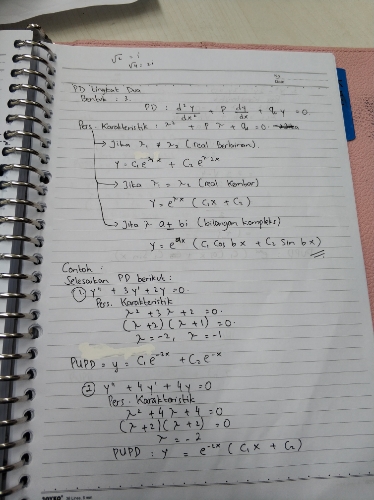 √1 = 1
√-1 = i
PD Tingkat Dua
Bentuk : 2
PD : d²y/dx² + P dy/dx + qy = 0
Pers. Karakteristik : λ² + Pλ + q = 0
Jika λ₁ ≠ λ₂ (real Berlainan)
y = C₁e^λ₁x + C₂e^λ₂x
Jika λ₁ = λ₂ (real Kembar)
y = e^λx (C₁x + C₂)
Jika λ a ± bi (bilangan kompleks)
y = e^ax (C₁ Cos bx + C₂ Sin bx)
Contoh :
Selesaikan PD berikut :
① y'' + 3y' + 2y = 0
Pers. Karakteristik
λ² + 3λ + 2 = 0
(λ+2)(λ+1) = 0
λ = -2, λ = -1
PUPD = y = C₁e^-2x + C₂e^-x
② y'' + 4y' + 4y = 0
Pers. Karakteristik
λ² + 4λ + 4 = 0
(λ+2)(λ+2) = 0
λ = -2
PUPD : y = e^-2x (C₁x + C₂)